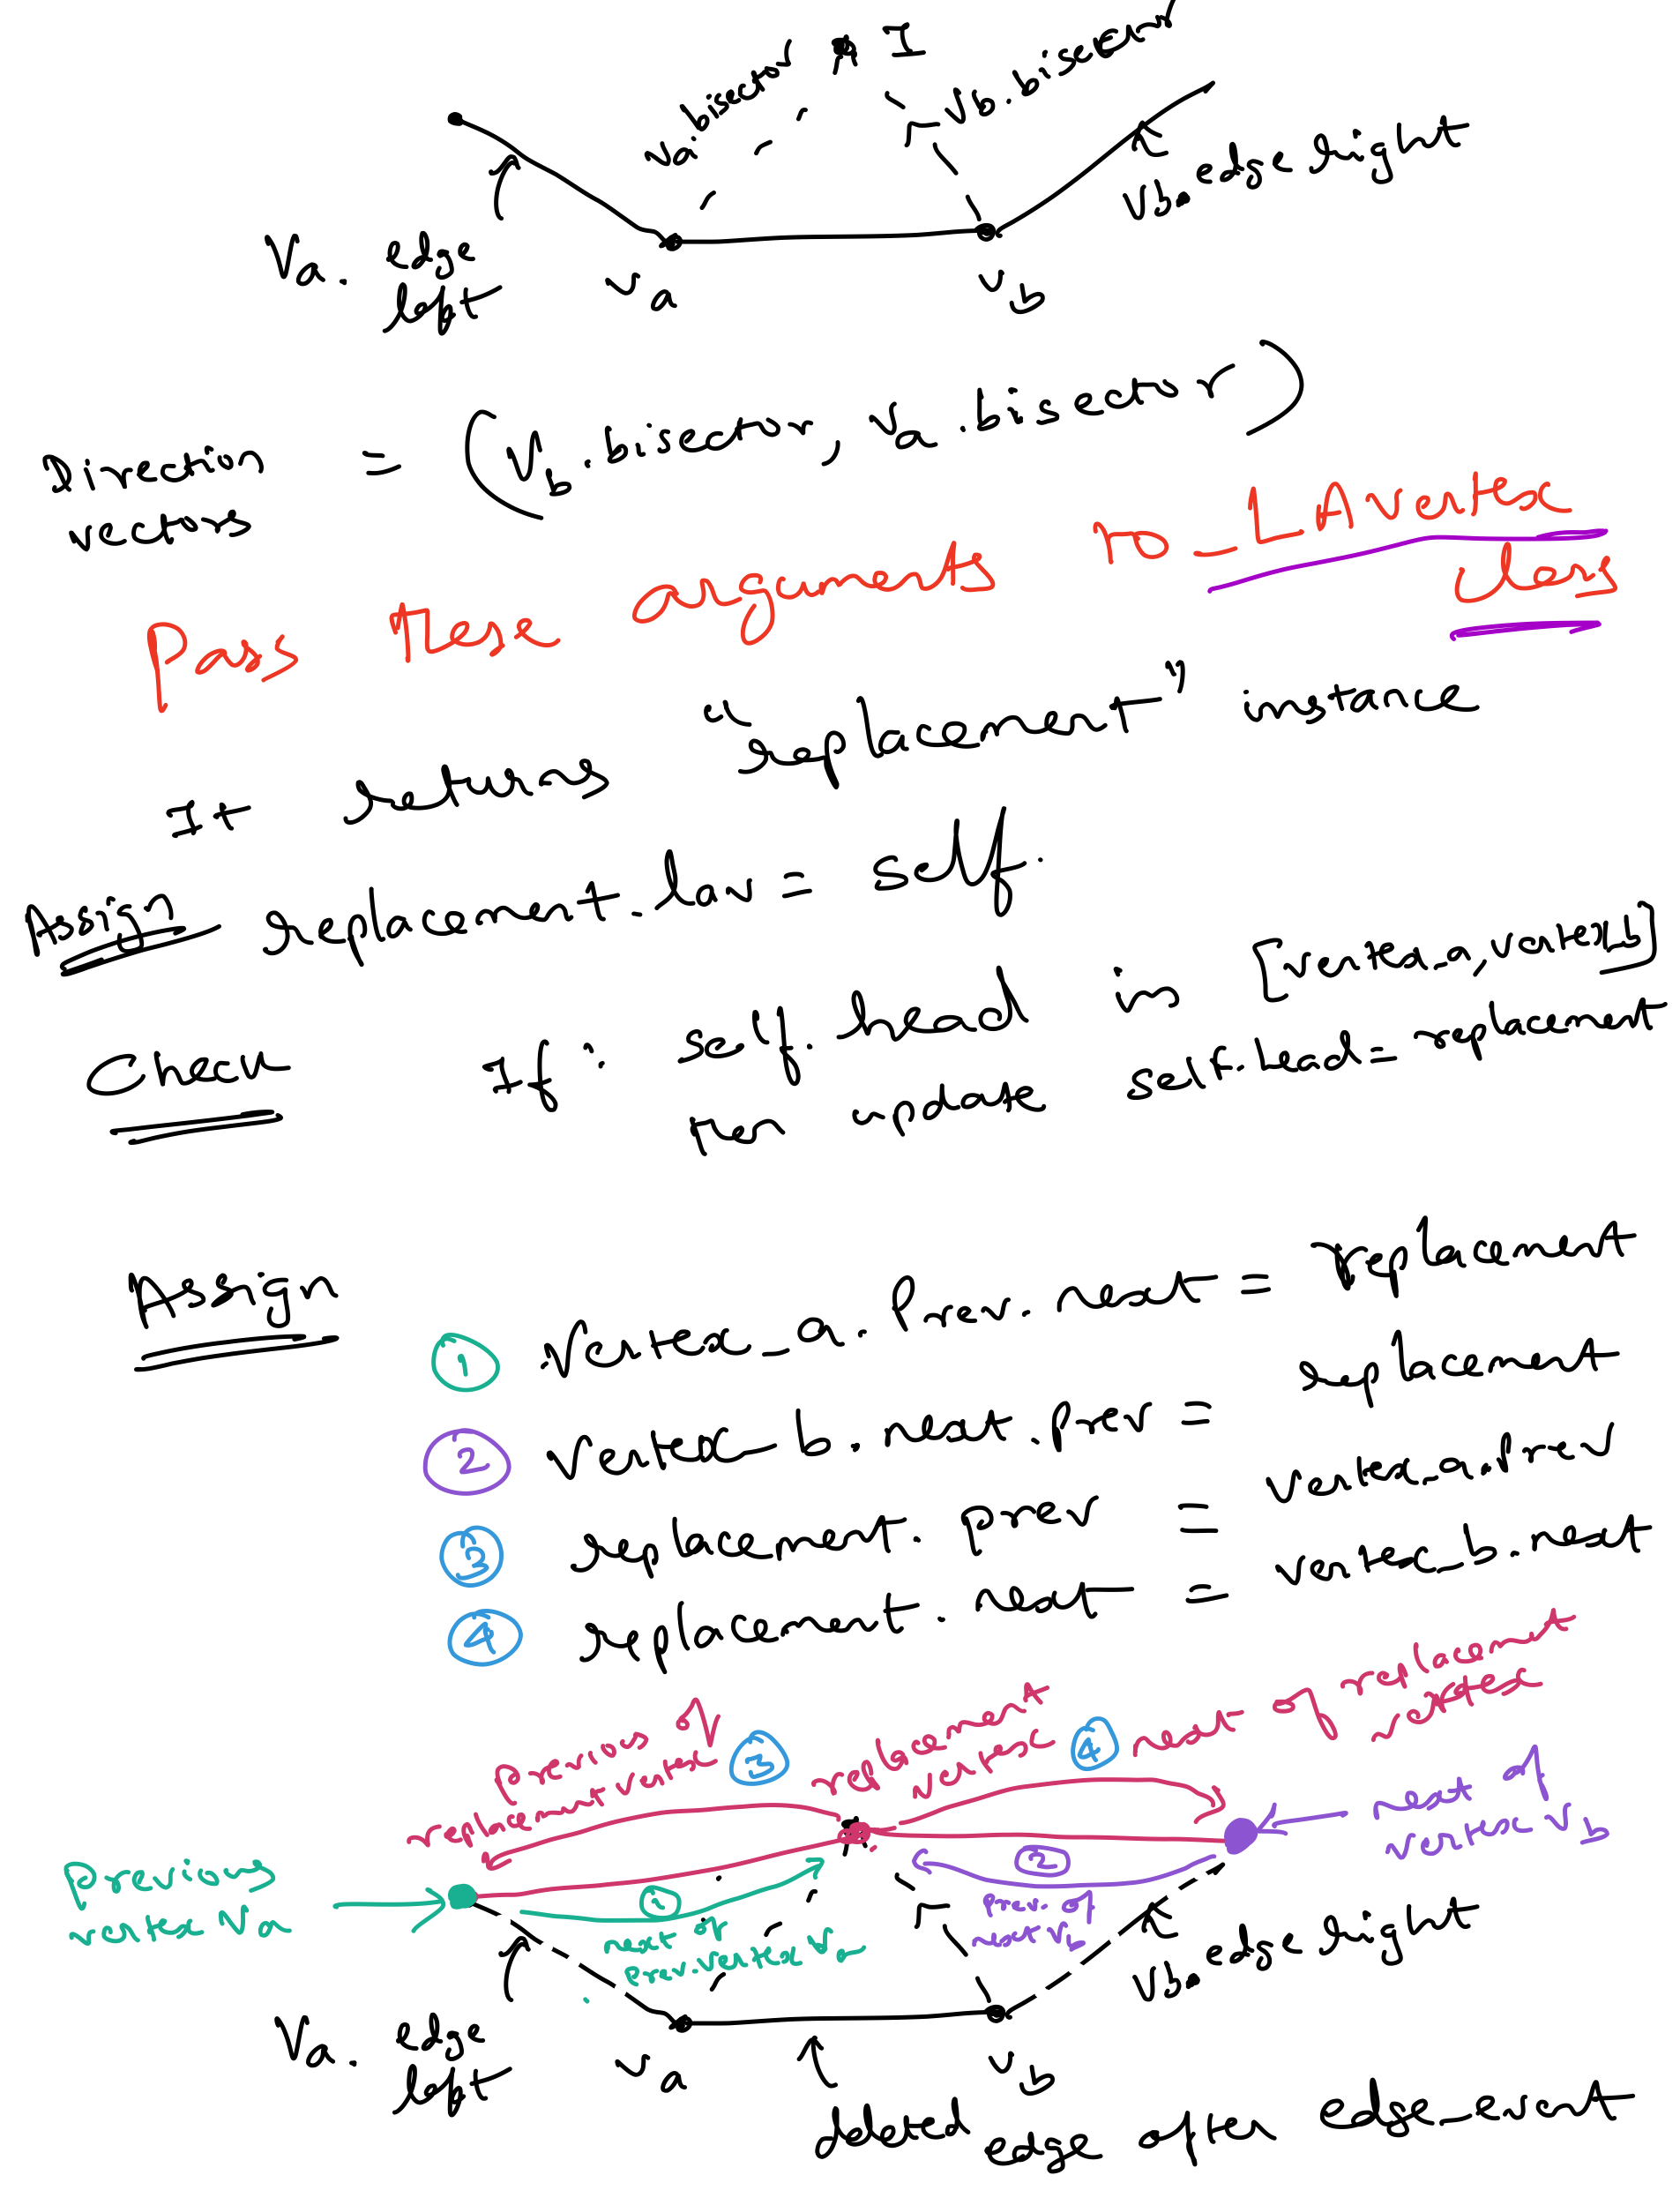 Va.bisector
I
Vb.bisector
Va. edge left
Va
Vb
Vb. edge right
Direction vectors = (Vb.bisector, Va.bisector)
Pass these arguments to _LAvertex class
It returns "replacement" instance
Assign replacement.lav = self.
Check If: self.head in [vertex_a, vertex_b]
then update self.head = replacement
Assign
1 Vertex_a.Prev.next = replacement
2 Vertex_b.next.prev = replacement
3 replacement.prev = vertex_a.Prev
4 replacement.next = vertex_b.next
previous of replacement vertex
3
replacement vertex
4
next of replacement vertex
Previous vertex Va
next of vertex Vb
1
next of prev.vertex Va
2
prev. of next Vb
Va. edge left
Va
Vb
Vb. edge right
deleted edge after edge_event